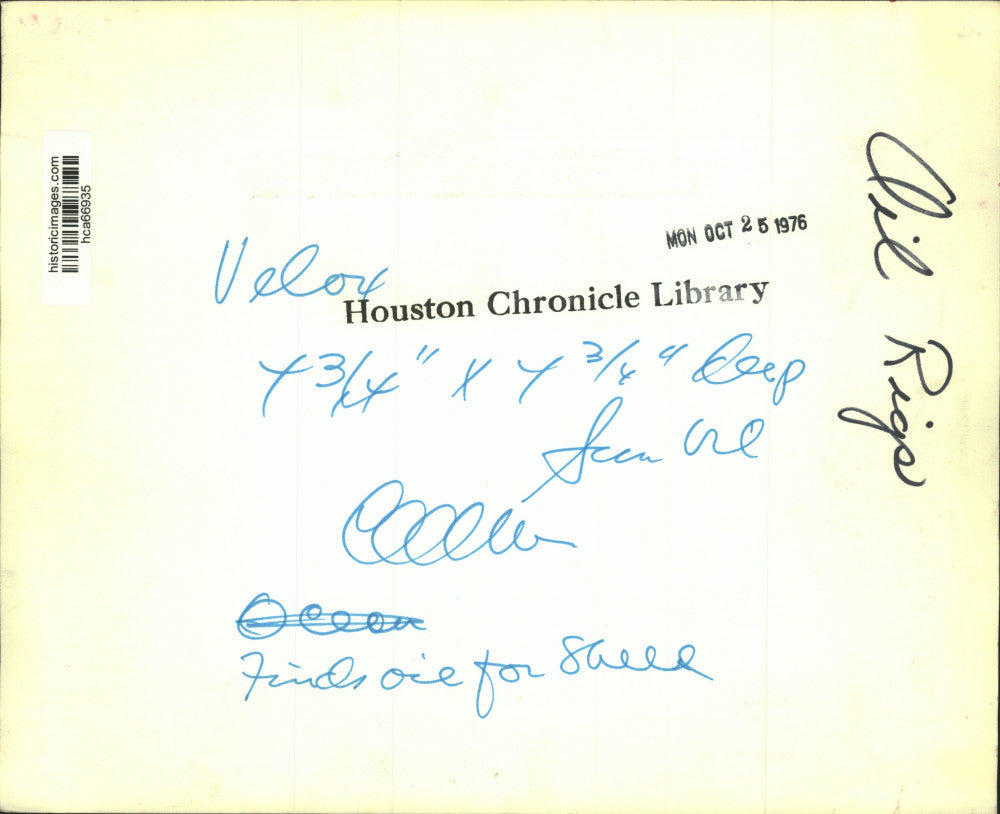 historicimages.com
hca66935
Oil Rigs
MON OCT 25 1976
Velox
Houston Chronicle Library
4 3/4" X 4 3/4" deep
Ocean
Finds oil for Shell